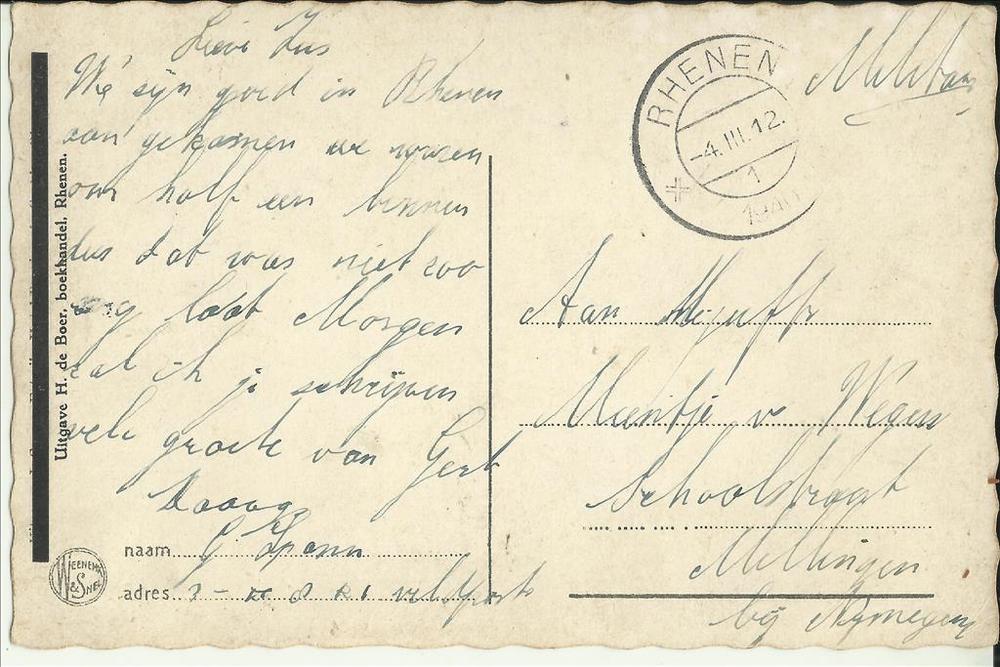 Lieve Zus
We zijn goed in Rhenen
aan gekomen we waren
om half een binnen
dus dat was niet zoo
erg laat Morgen
zal ik je schrijven
vele groete van Gert
Daaag
naam G Spann
adres veldpost
Uitgave H. de Boer, boekhandel, Rhenen.
WEENENK & SNEL
RHENEN
-4.III.12.
1
1940
Militair
Aan Mejuffr
Meentje v Wegen
Schoolstraat
Millingen
bij Nijmegen